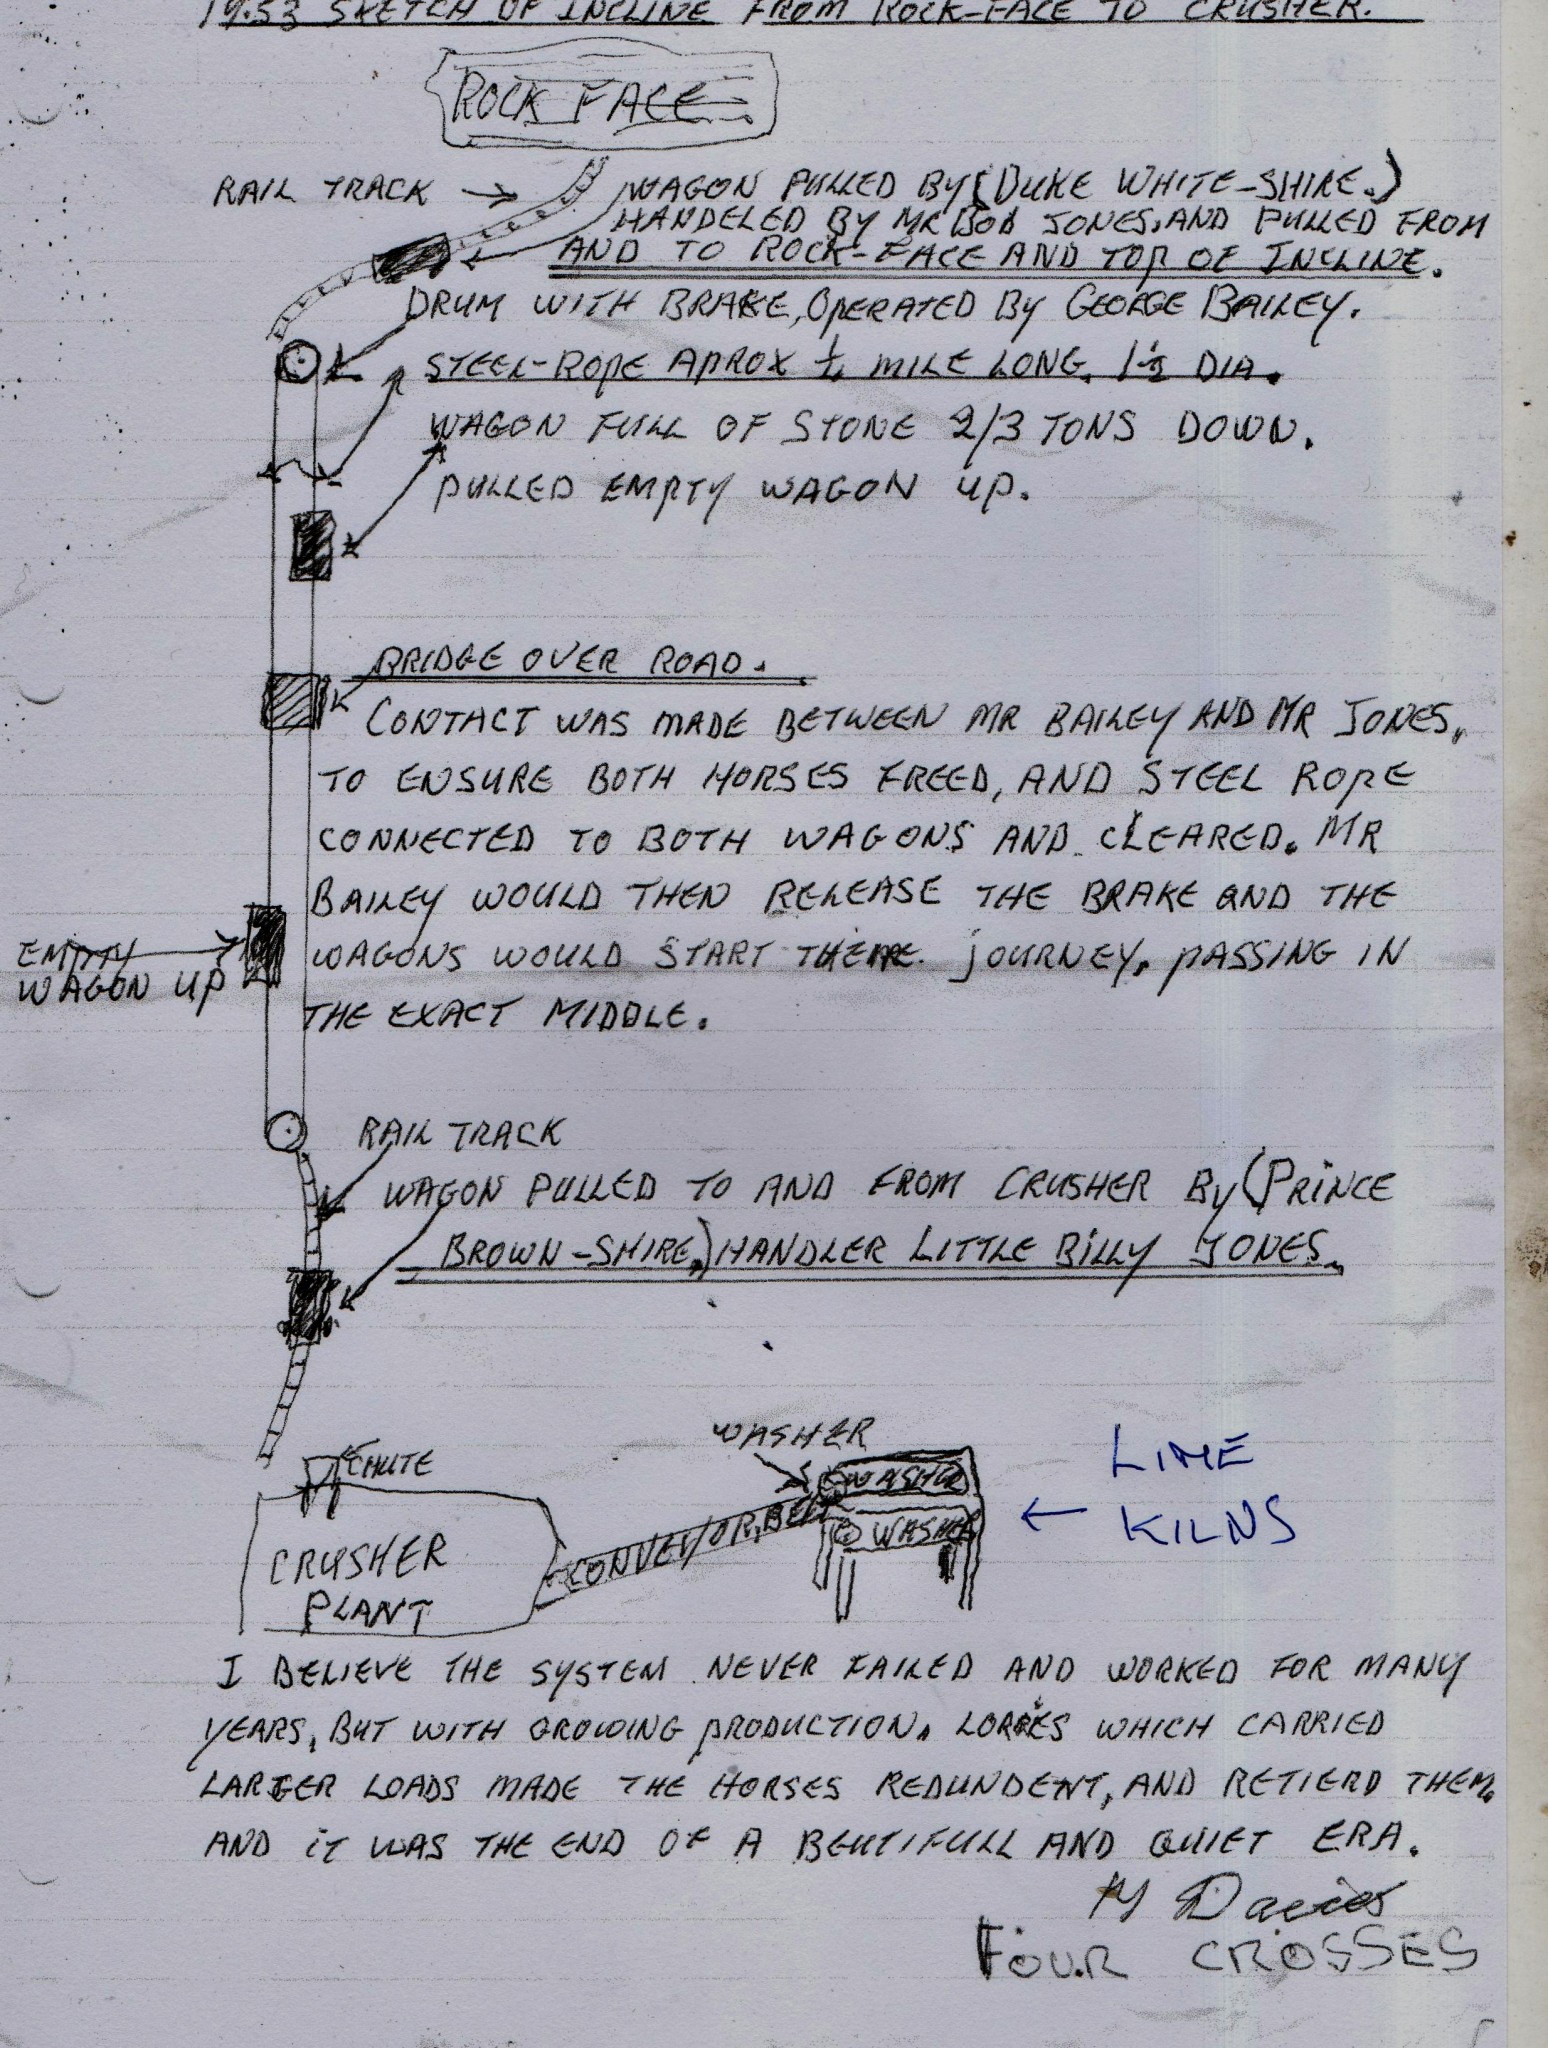 19.53 SKETCH OF INCLINE FROM ROCK-FACE TO CRUSHER.
ROCK FACE
RAIL TRACK
WAGON PULLED BY (DUKE WHITE-SHIRE.)
HANDELED BY MR BOB JONES, AND PULLED FROM
AND TO ROCK-FACE AND TOP OF INCLINE.
DRUM WITH BRAKE, OPERATED BY GEORGE BAILEY.
STEEL-ROPE APROX MILE LONG. 1½ DIA.
WAGON FULL OF STONE 2/3 TONS DOWN.
PULLED EMPTY WAGON UP.
BRIDGE OVER ROAD.
CONTACT WAS MADE BETWEEN MR BAILEY AND MR JONES,
TO ENSURE BOTH HORSES FREED, AND STEEL ROPE
CONNECTED TO BOTH WAGONS AND CLEARED. MR
BAILEY WOULD THEN RELEASE THE BRAKE AND THE
EMPTY
WAGON UP
WAGONS WOULD START JOURNEY, PASSING IN
THE EXACT MIDDLE.
RAIL TRACK
WAGON PULLED TO AND FROM CRUSHER BY (PRINCE
BROWN-SHIRE.) HANDLER LITTLE BILLY JONES.
WASHER
CHUTE
WASHER
LIME
KILNS
CONVEYOR, BELT
WASHER
CRUSHER
PLANT
I BELIEVE THE SYSTEM NEVER FAILED AND WORKED FOR MANY
YEARS, BUT WITH GROWING PRODUCTION. LORRIES WHICH CARRIED
LARGER LOADS MADE THE HORSES REDUNDENT, AND RETIERD THEM.
AND IT WAS THE END OF A BEUTIFULL AND QUIET ERA.
M Davies
FOUR CROSSES